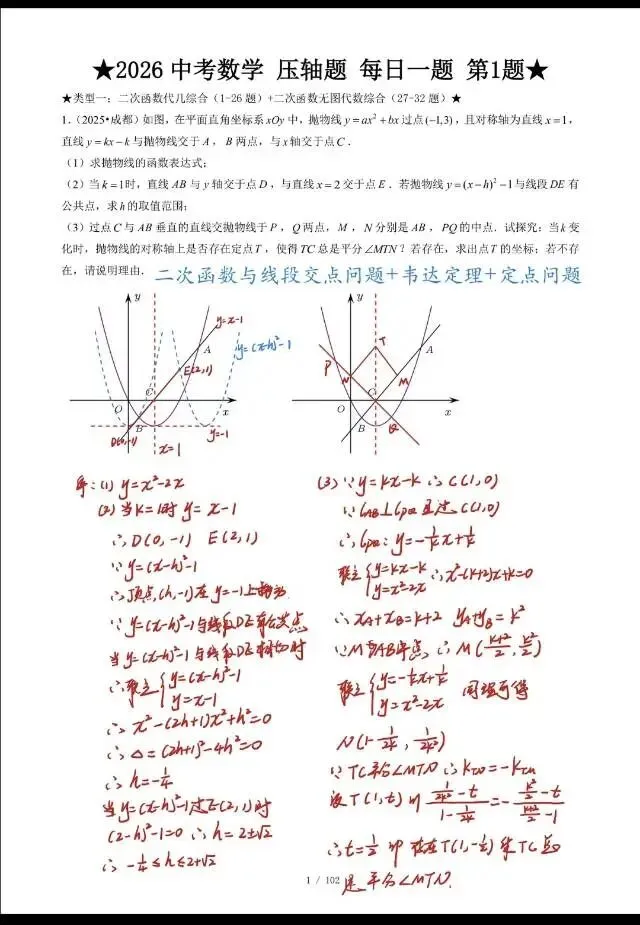 ★2026 中考数学 压轴题 每日一题 第1题★
★类型一：二次函数代几综合（1-26 题）+二次函数无图代数综合（27-32 题）★
1.（2025•成都）如图，在平面直角坐标系 xOy 中，抛物线 y=ax²+bx 过点(-1,3)，且对称轴为直线 x=1，
直线 y=kx-k 与抛物线交于 A，B 两点，与 x 轴交于点 C．
（1）求抛物线的函数表达式；
（2）当 k=1时，直线 AB 与 y 轴交于点 D，与直线 x=2 交于点 E．若抛物线 y=(x-h)²-1与线段 DE 有
公共点，求 h 的取值范围；
（3）过点 C 与 AB 垂直的直线交抛物线于 P，Q 两点，M，N 分别是 AB，PQ 的中点．试探究：当 k 变
化时，抛物线的对称轴上是否存在定点 T，使得 TC 总是平分 ∠MTN？若存在，求出点 T 的坐标；若不存
在，请说明理由．
二次函数与线段交点问题+韦达定理+定点问题
y
y=x-1
A
y=(x-h)²-1
E(2,1)
C
O
x
B
D(0,-1)
y=-1
x=1
y
T
A
P
N
M
C
O
x
B
Q
解：(1) y=x²-2x
(2) 当K=1时 y=x-1
∴D(0,-1) E(2,1)
∵y=(x-h)²-1
∴顶点(h,-1)在y=-1上
∵y=(x-h)²-1与线段DE有公共点
当y=(x-h)²-1与线段DE相切时
∴联立{y=(x-h)²-1
y=x-1
∴x²-(2h+1)x²+h²=0
∴△=(2h+1)²-4h²=0
∴h=-1/4
当y=(x-h)²-1过E(2,1)时
(2-h)²-1=0 ∴h=2±√2
∴-1/4≤h≤2+√2
(3)∵y=kx-k ∴C(1,0)
∵lAB⊥lPQ且过C(1,0)
∴lPQ：y=-1/k x+1/k
联立{y=kx-k
y=x²-2x ∴x²-(k+2)x+k=0
∴xA+xB=k+2 yA+yB=k²
∵M为AB中点 ∴M(k+2/2,k²/2)
联立{y=-1/k x+1/k
y=x²-2x 同理可得
N(1-1/2k,1/2k²)
∵TC平分∠MTN ∴kTN=-kTM
设T(1,t) 则 (1/2k²-t)/(1-1/2k)=-(k²/2-t)/(k+2/2-1)
∴t=1/2 即存在T(1,-1/2)使TC总
是平分∠MTN.
1 / 102